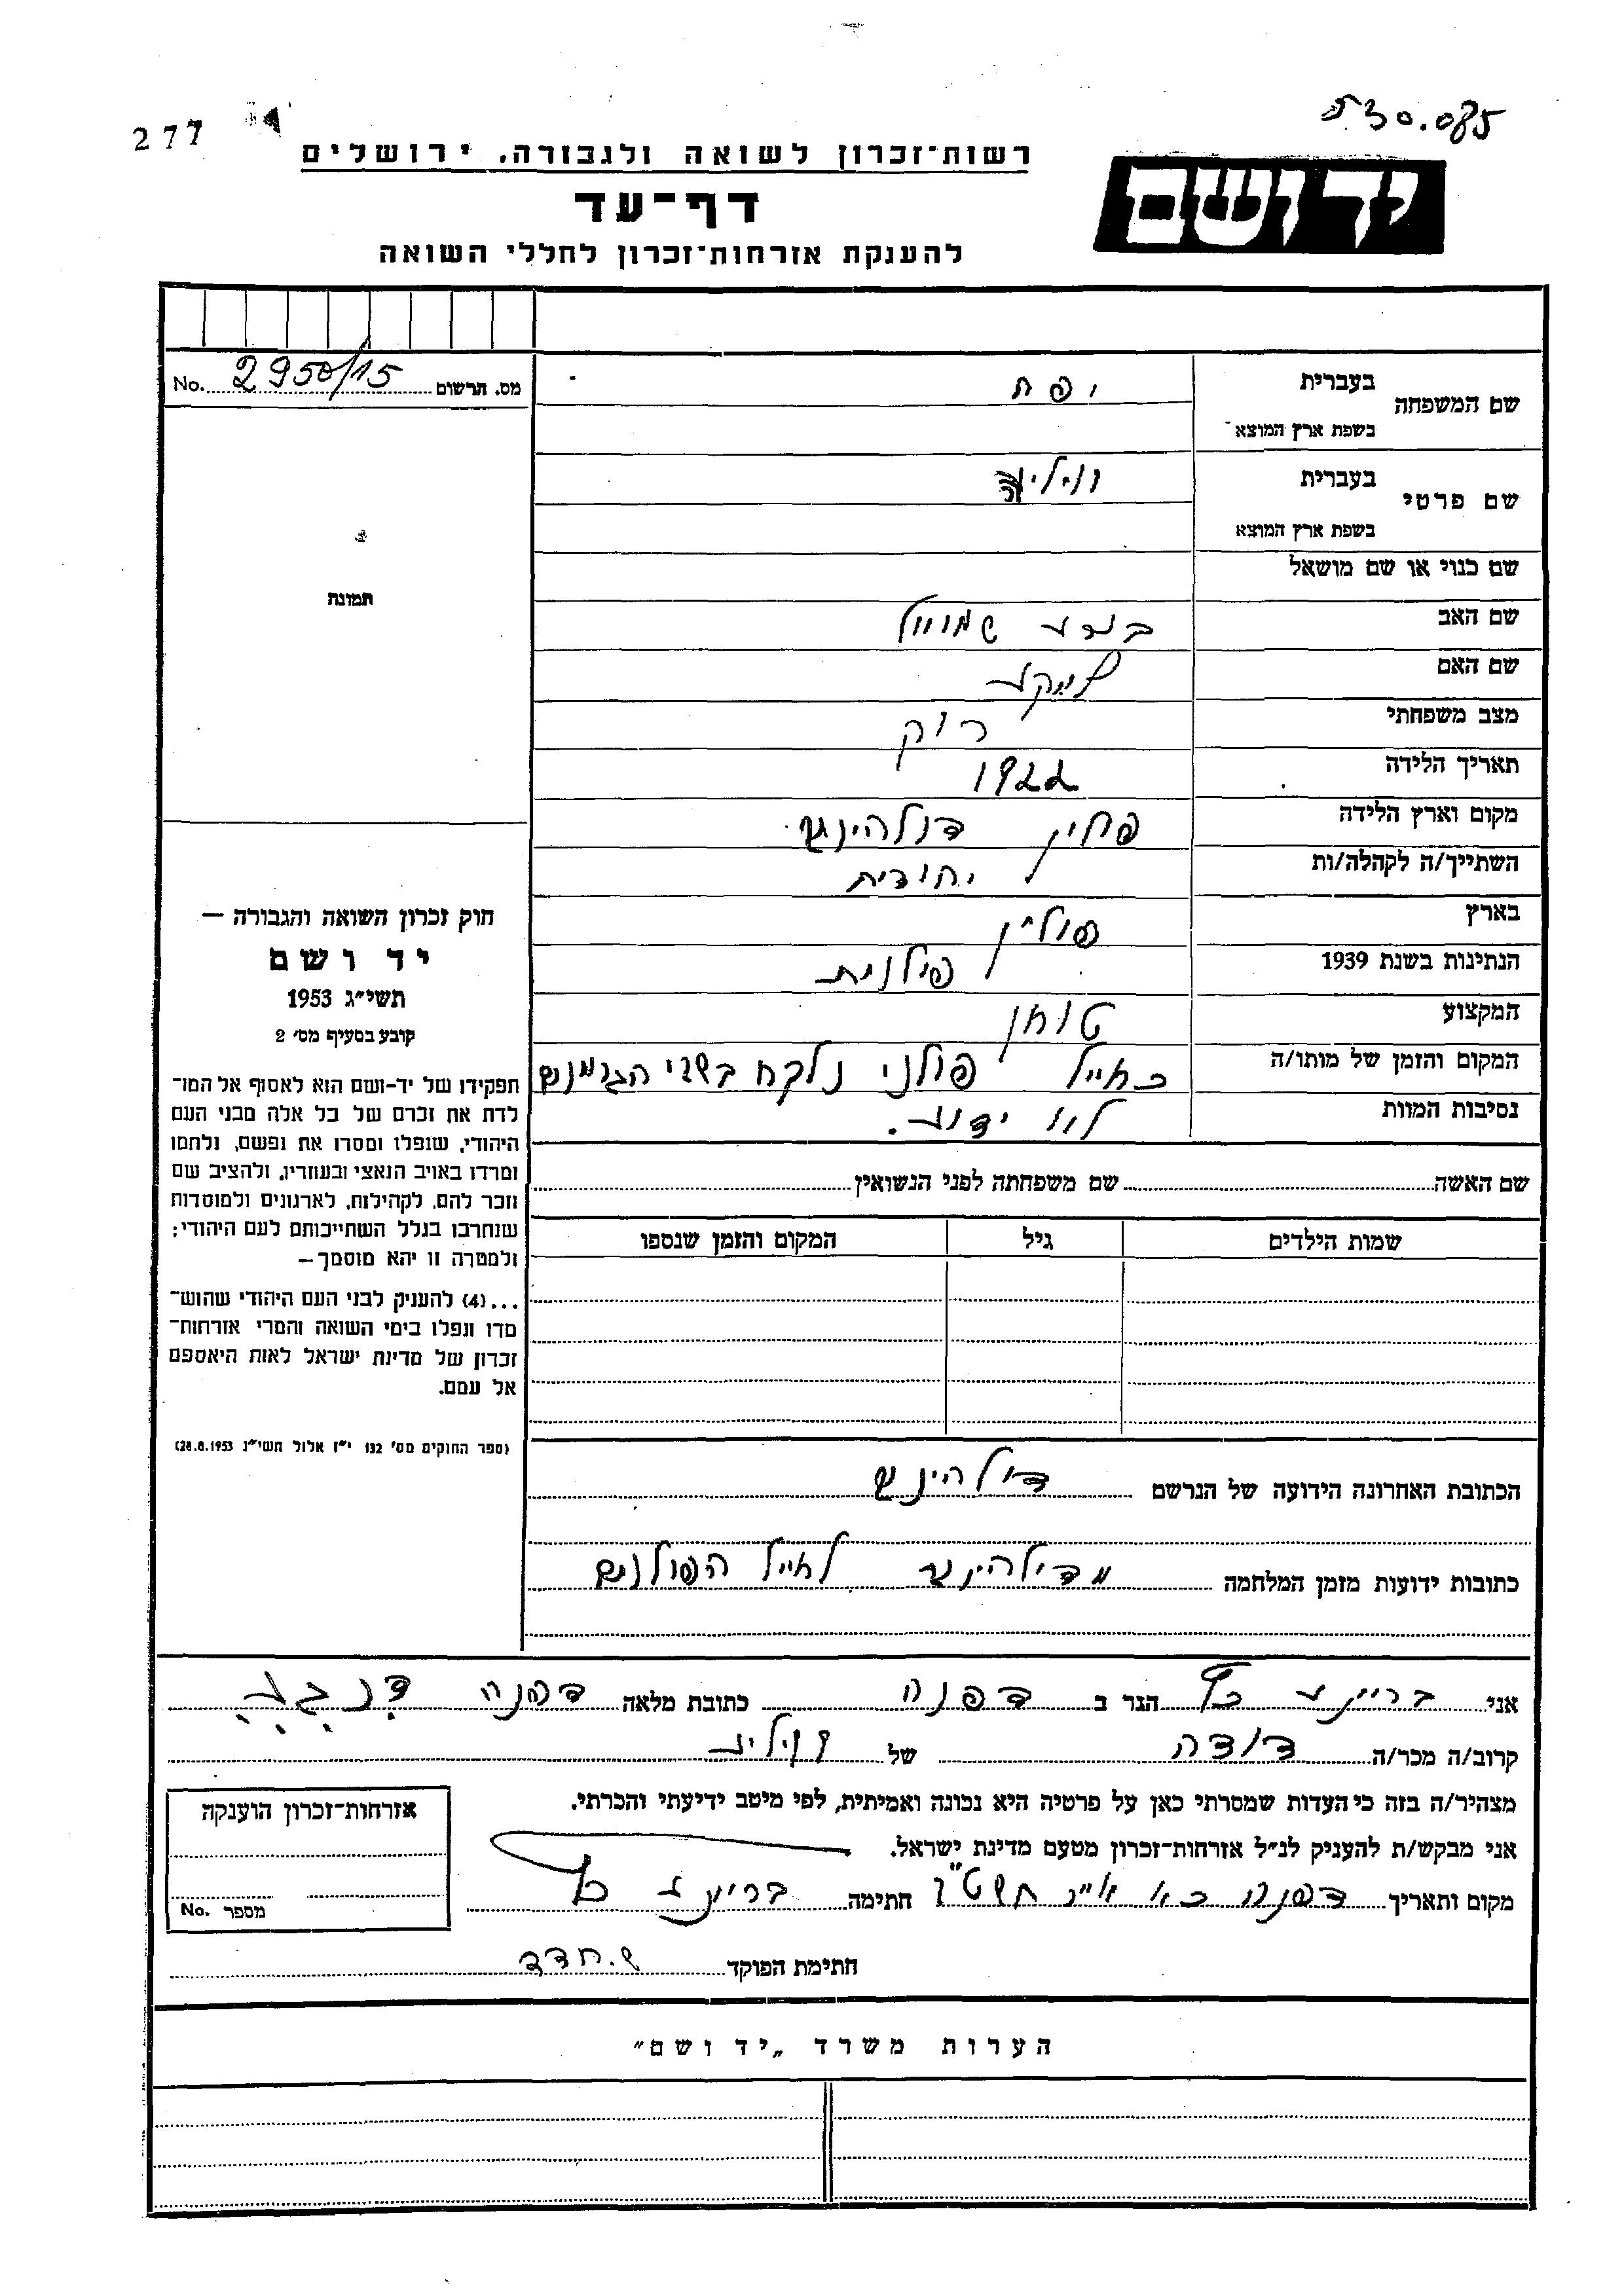 277
530.085
רשות־זכרון לשואה ולגבורה, ירושלים
יד ושם
דף־עד
להענקת אזרחות־זכרון לחללי השואה
מס. תרשום No. 2950/15
שם המשפחה
בעברית יפת
בשפת ארץ המוצא
שם פרטי
בעברית
בשפת ארץ המוצא
שם כנוי או שם מושאל
שם האב שמואל
שם האם
מצב משפחתי רוק
תאריך הלידה 1922
מקום וארץ הלידה פולין
השתייך/ה לקהלה/ות יהודית
בארץ פולין
הנתינות בשנת 1939 פולנית
המקצוע טוחן
המקום והזמן של מותו/ה כחייל פולני נלקח בשבי הגרמנים
נסיבות המוות לא ידוע.
שם האשה שם משפחתה לפני הנשואין
שמות הילדים גיל המקום והזמן שנספו
תמונה
חוק זכרון השואה והגבורה —
יד ושם
תשי״ג 1953
קובע בסעיף מס׳ 2
תפקידו של יד-ושם הוא לאסוף אל המו־
לדת את זכרם של כל אלה מבני העם
היהודי, שנפלו ומסרו את נפשם, נלחמו
ומרדו באויב הנאצי ובעוזריו, ולהציב שם
וזכר להם, לקהילות, לארגונים ולמוסדות
שנחרבו בגלל השתייכותם לעם היהודי;
ולמטרה זו יהא מוסמך —
...(4) להעניק לבני העם היהודי שהוש־
מדו ונפלו בימי השואה והמרי אזרחות־
זכרון של מדינת ישראל לאות היאספם
אל עמם.
(ספר החוקים מס׳ 132 י״ז אלול תשי״ג 28.8.1953)
הכתובת האחרונה הידועה של הנרשם
כתובות ידועות מזמן המלחמה לחייל הפולנים
אני הגר ב דפנה כתובת מלאה דפנה
קרוב/ה מכר/ה דודה של
מצהיר/ה בזה כי העדות שמסרתי כאן על פרטיה היא נכונה ואמיתית, לפי מיטב ידיעתי והכרתי.
אני מבקש/ת להעניק לנ״ל אזרחות־זכרון מטעם מדינת ישראל.
מקום ותאריך דפנה כא חתימה
חתימת הפוקד ש. חדד
אזרחות־זכרון הוענקה
מספר No.
הערות משרד „יד ושם״